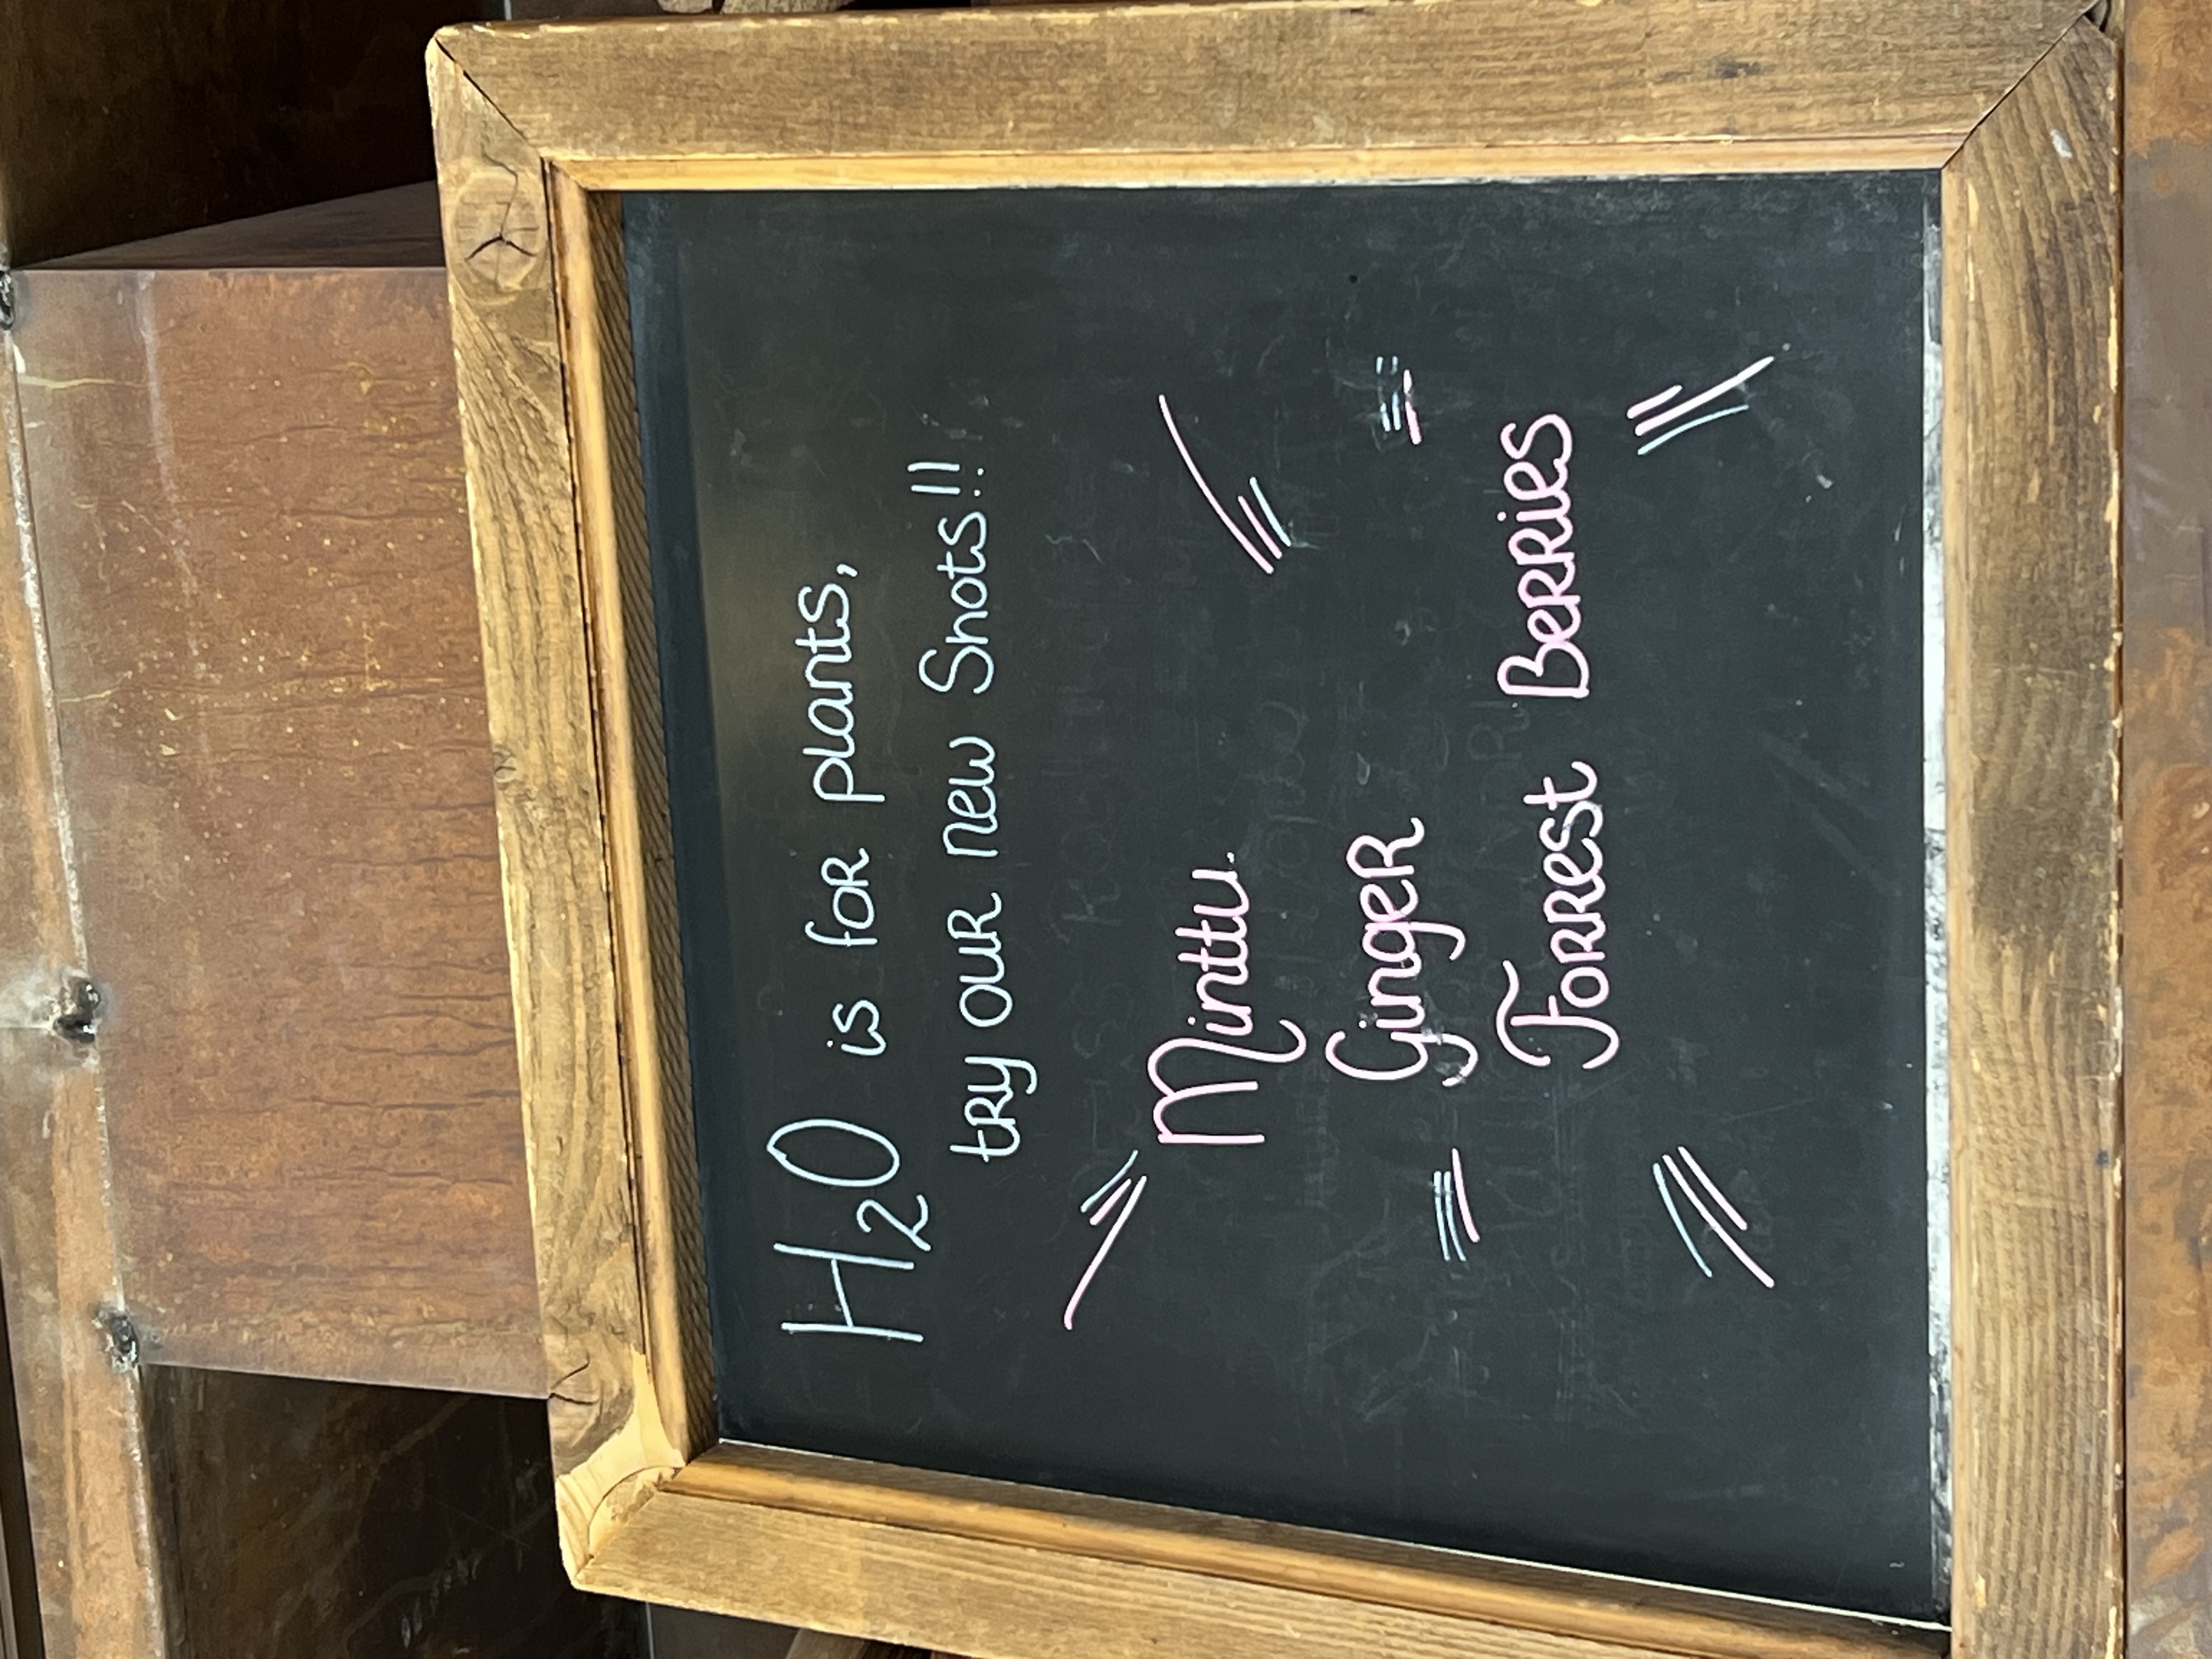 H2O is for plants,
try our new Shots!!
Minttu
Ginger
Forrest Berries